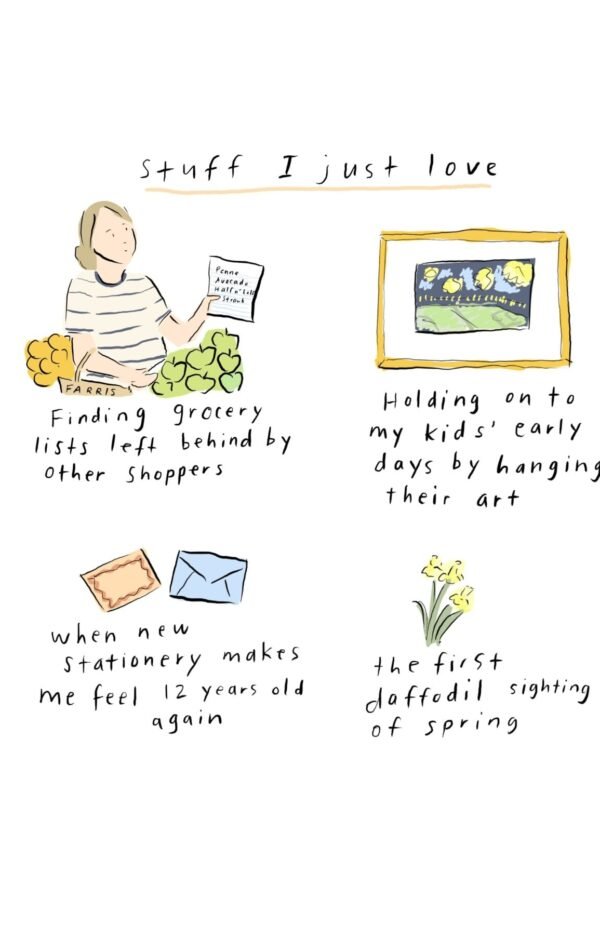 Stuff I just love
Penne
Avocado
Half n' half
FARRIS
Finding grocery
lists left behind by
other shoppers
Holding on to
my kids' early
days by hanging
their art
when new
Stationery makes
me feel 12 years old
again
the first
daffodil sighting
of spring